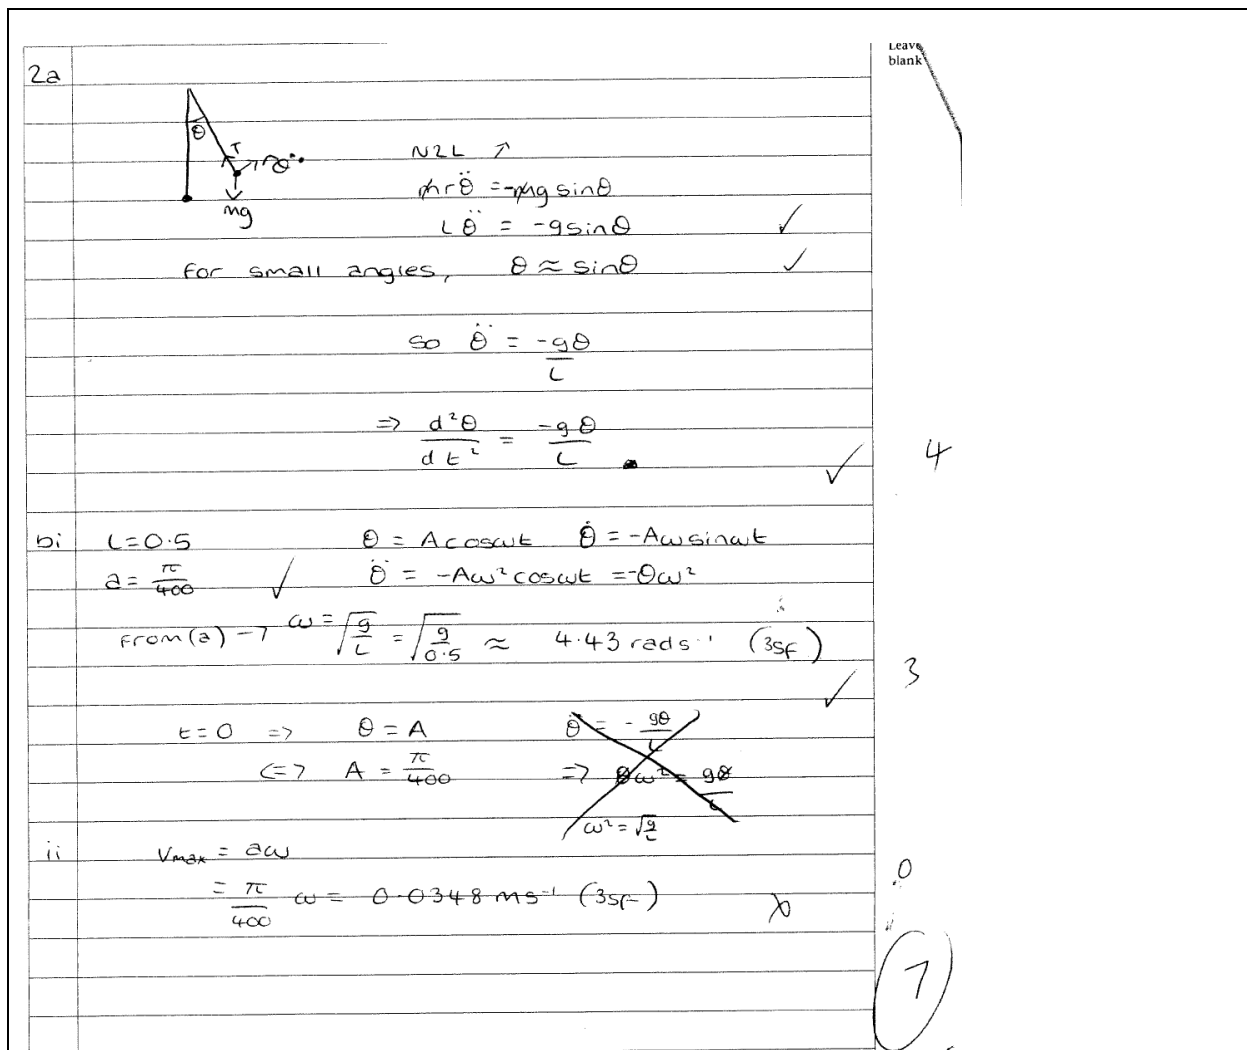 Leave
blank
2a
θ
T
rθ̈
mg
N2L ↗
mrθ̈ = -mg sinθ
Lθ̈ = -gsinθ ✓
For small angles, θ ≈ sinθ ✓
so θ̈ = -gθ/L
=> d²θ/dt² = -gθ/L ✓ 4
bi L=0.5 θ = Acosωt θ̇ = -Aωsinωt
a = π/400 ✓ θ̈ = -Aω²cosωt = -θω²
From (a) → ω = √(g/L) = √(g/0.5) ≈ 4.43 rads⁻¹ (3sf)
✓ 3
t=0 => θ = A θ̈ = -gθ/L
<=> A = π/400 => θω² = gθ/L
ω² = √(g/L)
ii Vmax = aω 0
= π/400 ω = 0.0348 ms⁻¹ (3sf)
7